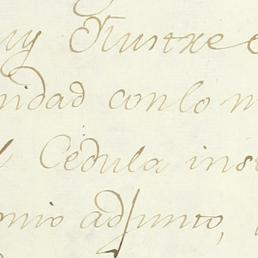 uy Ilustre
nidad con lo
Cedula ins
onio adjunto,